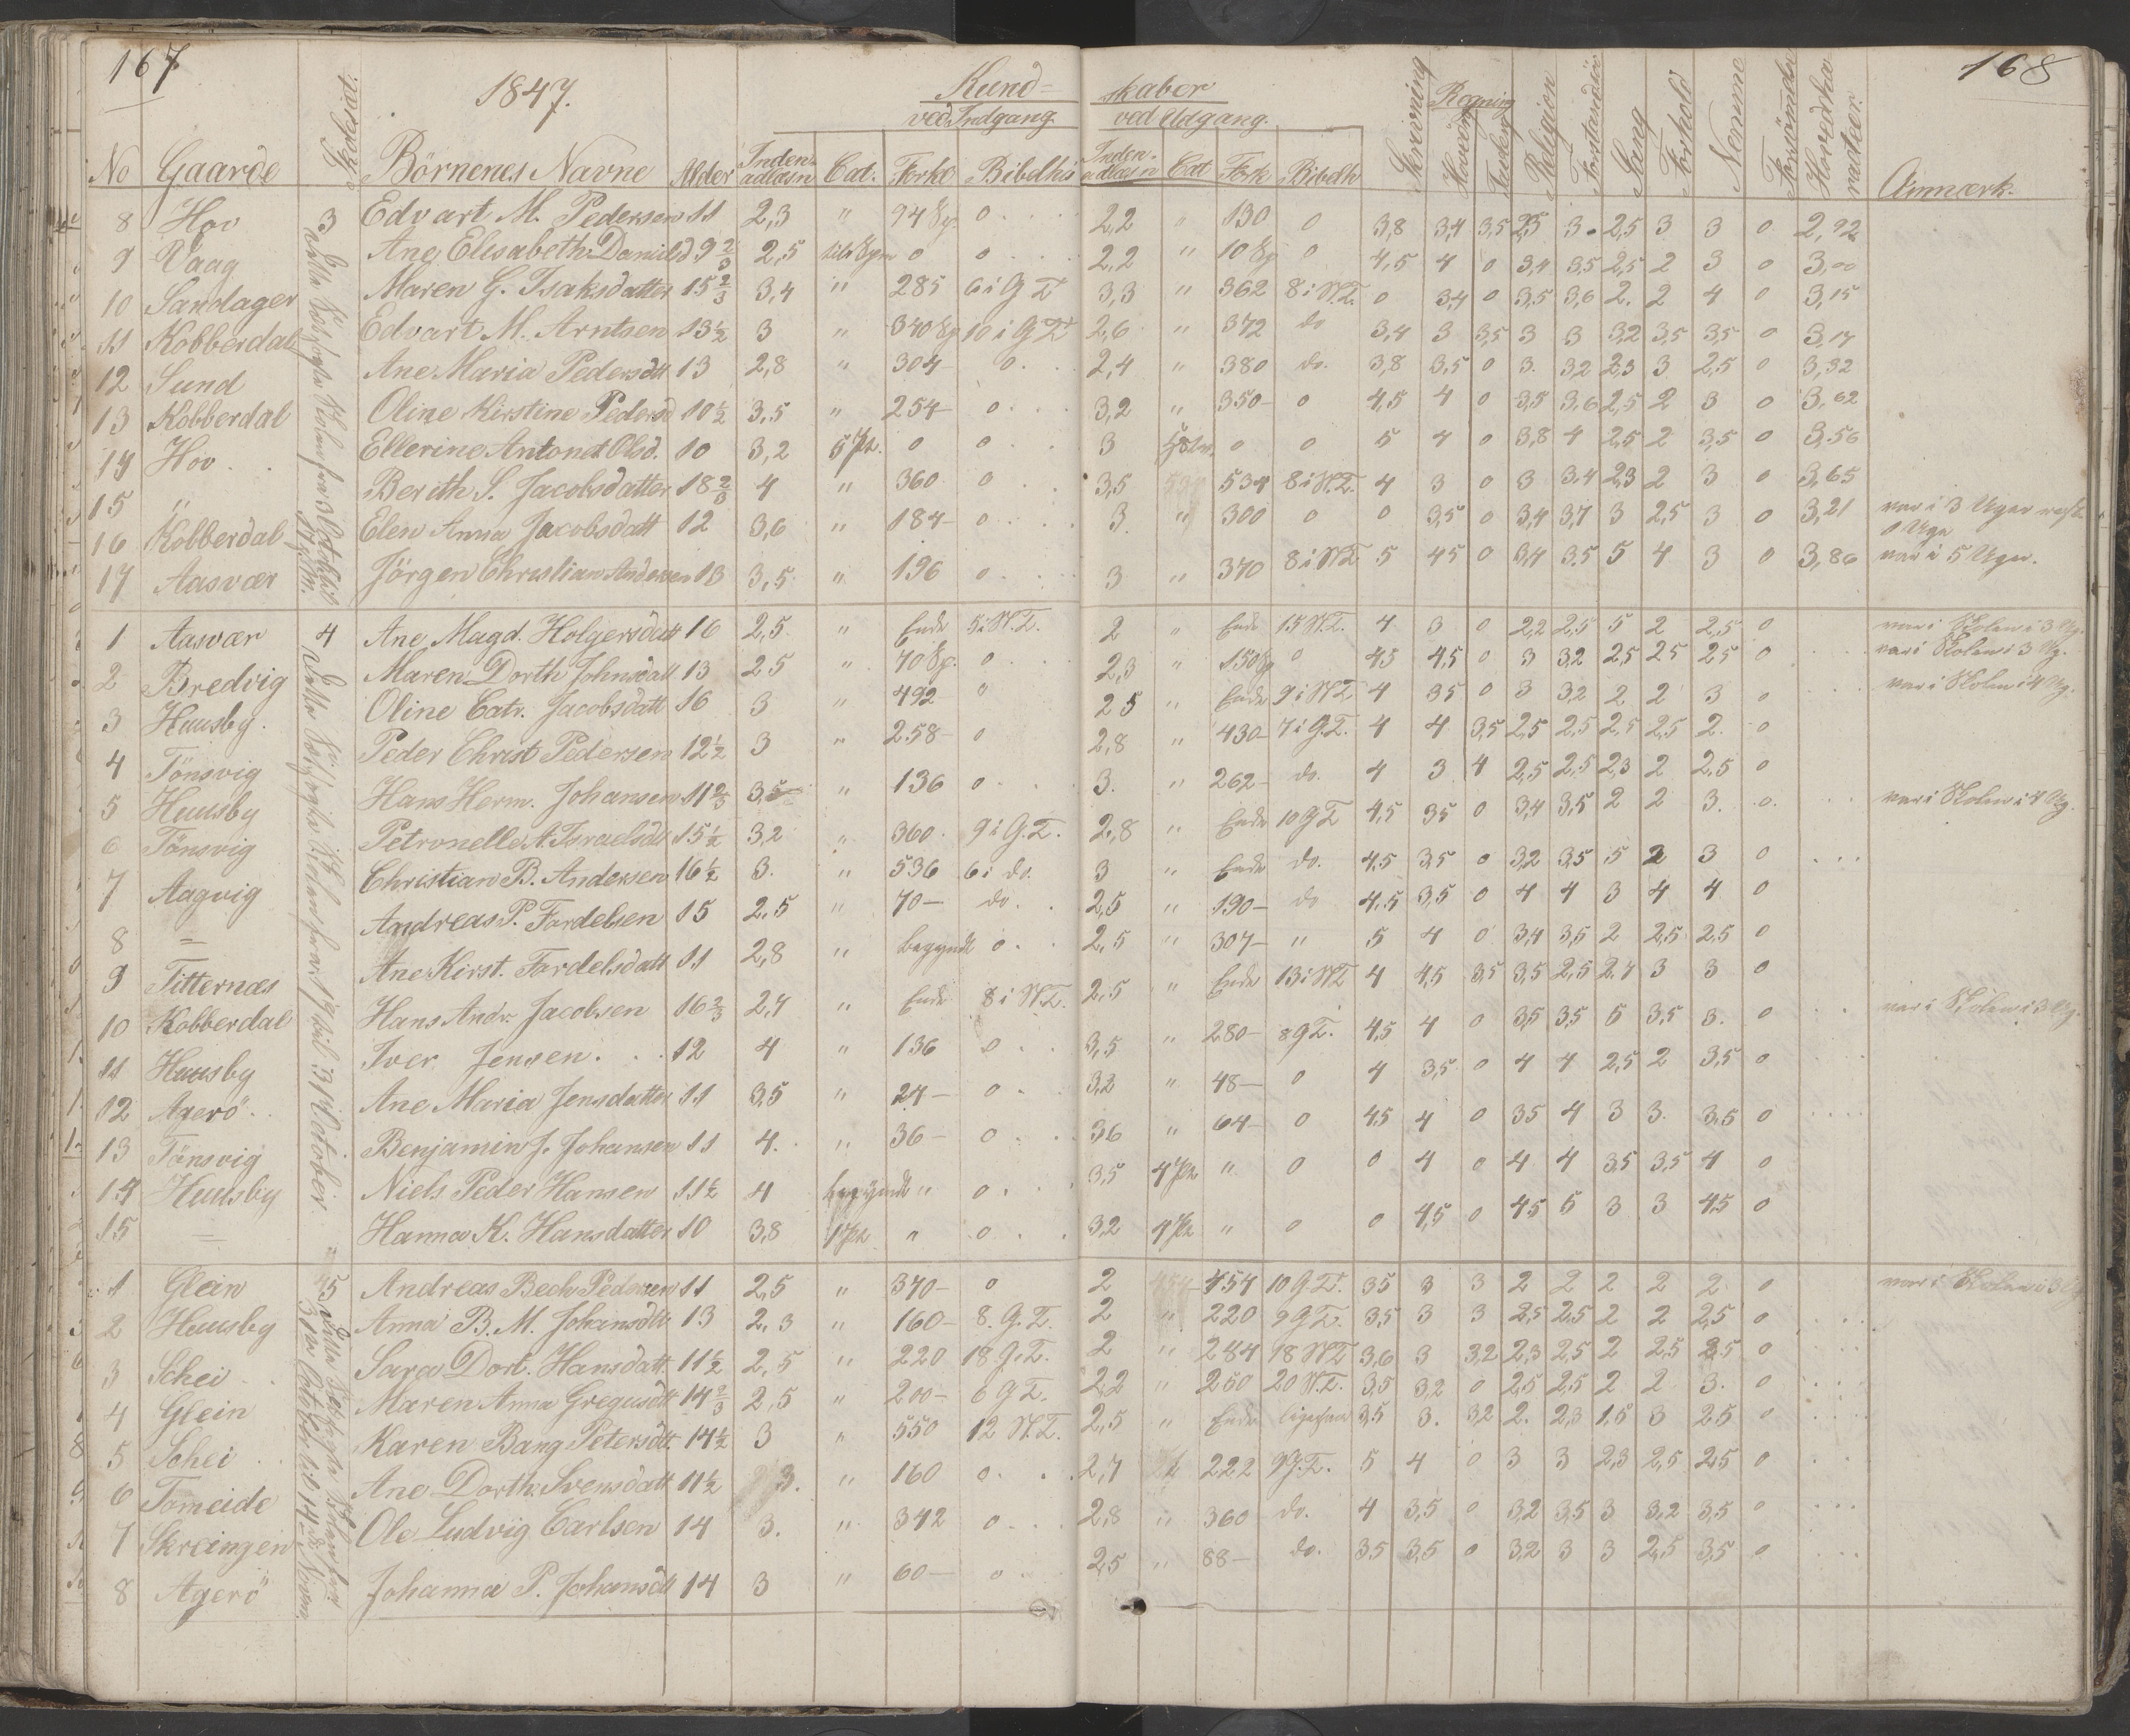 167
168
1847.
Kund- skaber
ved Indgang ved Udgang.
No Gaarde Börnenes Navne Alder Inden-adlæsn Cat. Forkl Bibelhis Inden-adlæsn Cat Fork Bibelh Skrivning Regning Hoved Tavlen Religion Forstandsöv Sang Forhold Nemme Forsömmelse Hovedkarakteer. Anmærk.
8 Hov 3 Edvart M. Pedersen 11 2,3 " 94 Sp. 0 2,2 " 130 0 3,8 3,4 3,5 2,5 3 2,5 3 3 0 2,92
9 Vaag Ane Elisabeth Danield 9 2/3 2,5 0 0 2,2 " 10 Sp 0 4,5 4 0 3,4 3,5 2,5 2 3 0 3,00
10 Sandlager Maren G. Isaksdatter 15 2/3 3,4 " 285 6 i G T 3,3 " 362 8 i N.T. 0 3,4 0 3,5 3,6 2. 2 4 0 3,15
11 Kobberdal Edvart M. Arntsen 13 1/2 3 " 340 Sp 10 i G T 2,6 " 372 do 3,4 3 3,5 3 3 3,2 3,5 3,5 0 3,17
12 Sund Ane Maria Pedersdtt 13 2,8 " 304 0 2,4 " 380 do. 3,8 3,5 0 3. 3,2 2,3 3 2,5 0 3,32
13 Kobberdal Oline Kirstine Pedersd 10 1/2 3,5 " 254 0 3,2 " 350 0 4,5 4 0 3,5 3,6 2,5 2 3 0 3,62
14 Hov Ellerine Antonet Olsd. 10 3,2 5 Pt. 0 0 3 0 0 5 4 0 3,8 4 2,5 2 3,5 0 3,56
15 " Berith S. Jacobsdatter 18 2/3 4 " 360 0 3,5 534 8 i N.T. 4 3 0 3 3,4 2,3 2 3 0 3,65
16 Kobberdal Elen Anna Jacobsdatt 12 3,6 " 184 0 3. " 300 0 0 3,5 0 3,4 3,7 3 2,5 3 0 3,21 var i 3 Uger
17 Aasvær Jörgen Christian Andersen 13 3,5 " 196 0 3 " 370 8 i N T 5 4,5 0 3,4 3,5 5 4 3 0 3,86 var i 5 Uger.
1 Aasvær 4 Ane Magd. Holgersdatt 16 2,5 " Ende 5 i N.T. 2 " Ende 15 N.T. 4 3 0 2,2 2,5 5 2 2,5 0 var i Skolen i 3 Ug.
2 Bredvig Maren Dorth Johnsdatt 13 2,5 " 70 Sp. 0 2,3 " 150 Sp 0 4,5 4,5 0 3 3,2 2,5 2,5 2,5 0 var i Skolen i 3 Ug.
3 Huusby. Oline Catr. Jacobsdatt 16 3 " 492 0 2 5 " Ende 9 i N T 4 3,5 0 3 3,2 2 2 3 0 var i Skolen i 4 Ug.
4 Tönsvig Peder Christ Pedersen 12 1/2 3 " 258 0 2,8 " 430 7 i G.T. 4 4 3,5 2,5 2,5 2,5 2,5 2. 0
5 Huusby Hans Herm. Johansen 11 2/3 3,5 " 136 0 3. " 262 do. 4 3 4 2,5 2,5 2,3 2 2,5 0
6 Tönsvig Petronelle A. Israelsdtt 15 1/2 3,2 " 360. 9 i G.T. 2,8 " Ende 10 G T 4,5 3,5 0 3,4 3,5 2 2 3. 0. var i Skolen i 4 Ug.
7 Aagvig Christian B. Andersen 16 1/2 3. " 536 6 i do. 3 " Ende do. 4,5 3,5 0 3,2 3,5 5 2 3 0
8 = Andreas P. Fordelsen 15 2,5 " 70 do. 2,5 " 190 do 4,5 3,5 0 4 4 3 4 4 0
9 Titternæs Ane Kirst. Fordelsdatt 11 2,8 " begyndt 0 2,5 " 307 " 5 4 0 3,4 3,5 2 2,5 2,5 0
10 Kobberdal Hans Andr. Jacobsen 16 2/3 2,7 " Ende 8 i N.T. 2,5 " Ende 13 i N T 4 4,5 3,5 3,5 2,5 2,7 3 3 0
11 Huusby Iver Jensen. 12 4 " 136 0 3,5 " 280 8 G T. 4,5 4 0 3,5 3,5 5 3,5 3. 0 var i Skolen i 3 Ug.
12 Agerö Ane Maria Jensdatter 11 3,5 " 24 0 3,2 " 48 0 4 3,5 0 4 4 2,5 2 3,5 0
13 Tönsvig Benjamin J. Johansen 11 4. " 36 0 3,6 " 64 0 4,5 4 0 3,5 4 3 3. 3,5 0
14 Huusby Niels Peder Hansen 11 1/2 4 begyndt " 0 3,5 4 Pt " 0 0 4 0 4 4 3,5 3,5 4 0
15 = Hanna K. Hansdatter 10 3,8 1 Pt " 0 3,2 4 Pt " 0 0 4,5 0 4,5 5 3 3 4,5 0
1 Glein 5 Andreas Bech Pedersen 11 2,5 " 370 0 2 454 10 G.T. 3,5 3 3 2 2 2 2 2 0 var i Skolen i 3 Ug
2 Huusby Anna B. M. Johansdtt 13 2,3 " 160 8. G.T. 2 " 220 9 G T. 3,5 3 3 2,5 2,5 2 2 2,5 0
3 Schei Sara Dort. Hansdatt 11 1/2 2,5 " 220 18 G.T. 2 " 284 18 N T 3,6 3 3,2 2,3 2,5 2 2,5 2,5 0
4 Glein Maren Anna Gregusdtt 14 2/3 2,5 " 200 6 G T. 2,2 " 260 20 N.T. 3,5 3,2 0 2,5 2,5 2 2 3. 0
5 Schei Karen Bang Petersdtt 14 1/2 3 " 550 12 N.T. 2,5 " Ende ligesaa 3,5 3. 3,2 2. 2,3 1,5 3 2,5 0
6 Tomeide Ane Dorth. Svensdatt 11 1/2 3. " 160 0 2,7 222 9 G.T. 5 4 0 3 3 2,3 2,5 2,5 0
7 Skreingen Ole Ludvig Carlsen 14 3. " 342 0 2,8 " 360 do. 4 3,5 0 3,2 3,5 3 3,2 3,5 0
8 Agerö Johanna P. Johansdtt 14 3 " 60 0 2,5 " 88 do. 3,5 3,5 0 3,2 3 3 2,5 3,5 0